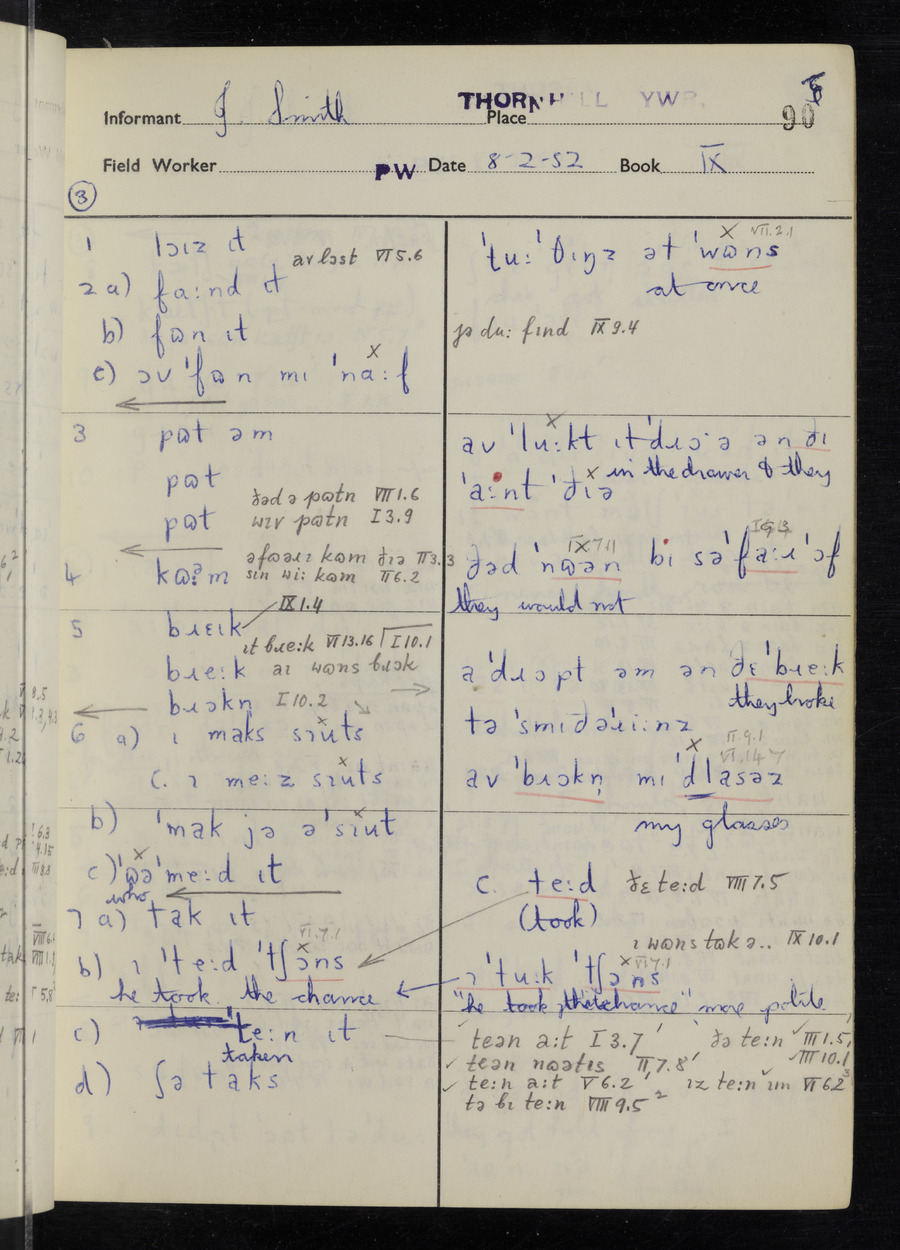 THORNHILL YWR.
Informant J. Smith Place 90
Field Worker PW Date 8-2-52 Book IX
8
1 lɔɪz ɪt
av lɔst VI 5.6
2 a) fa:nd ɪt
b) fɷn ɪt
c) ɔv 'fɷn mɪ 'na:f
3 pɷt əm
pɷt
pɷt
ðəd ə pɷtn VIII 1.6
wɪv pɷtn I 3.9
4 kɷʔm
əfɷəɹɪ kɷm ðɪə III 3.3
sɪn wi: kɷm II 6.2
5 bɹɛɪk IX 1.4
ɪt bɹe:k VI 13.16 I 10.1
bɹe:k aɪ wɷns bɹɔk
bɹɔkn̩ I 10.2
6 a) ɪ maks sɪuts
c. ɪ me:z sɪuts
b) 'mak jə ə 'sɪut
c) 'ɷə 'me:d ɪt
who
7 a) tak ɪt
b) ɪ 'te:d 'tʃɔns VI.7.1
he took the chance
c) te:n ɪt
taken
d) ʃə taks
'tu:' θɪŋz ət 'wɷns VII.2.1
at once
jə du: fɪnd IX 9.4
av 'lu:kt ɪt 'dɹɔ:ə ən ðɪ
'a:nt 'ðɪə in the drawer & they
ðəd 'nɷən bɪ sə 'fa:ɹ 'ɔf
IX 7.11
they would not
a 'dɹɔpt əm ən ðɛ 'bɹe:k
they broke
tə 'smɪðəɹi:nz
av 'bɹɔkn̩ mɪ 'dlasəz
II.9.1
VI.14.7
my glasses
c. te:d ðɛ te:d VIII 7.5
(took)
ɪ wɷns tɷk ə.. IX 10.1
ɔ 'tu:k 'tʃɔns VI 7.1
"he took the chance" more polite
teən a:t I 3.7 ðə te:n III 1.5,
teən nɷətɪs II 7.8 III 10.1
te:n a:t V 6.2 ɪz te:n ɪm VI 6.2
tə bɪ te:n VIII 9.5